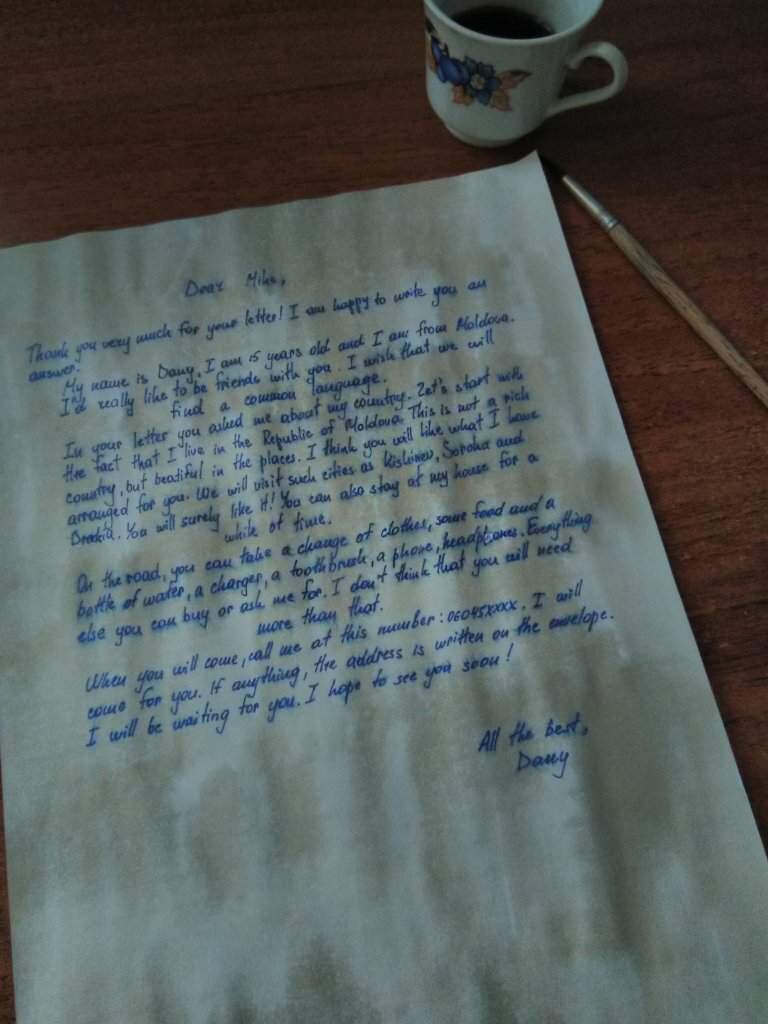 Dear Mike,
Thank you very much for your letter! I am happy to write you an
answer.
My name is Dany, I am 15 years old and I am from Moldova.
I'd really like to be friends with you. I wish that we will
find a common language.
In your letter you asked me about my country. Let's start with
the fact that I live in the Republic of Moldova. This is not a rich
country, but beatiful in the places. I think you will like what I have
arranged for you. We will visit such cities as Kishinev, Soroka and
Drokia. You will surely like it! You can also stay at my house for a
while of time.
On the road, you can take a change of clothes, some food and a
bottle of water, a charger, a toothbrush, a phone, headphones. Everything
else you can buy or ask me for. I don't think that you will need
more than that.
When you will come, call me at this number: 06045XXXX. I will
come for you. If anything, the address is written on the envelope.
I will be waiting for you. I hope to see you soon!
All the best,
Dany